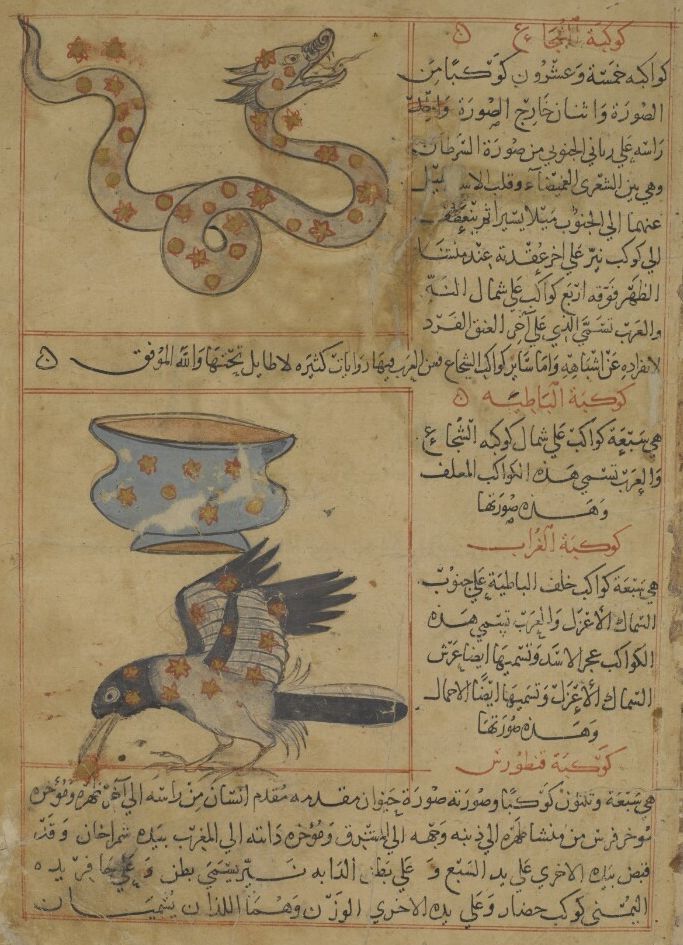 كوكبة الشجاع
كواكبه خمسة وعشرون كوكبا من
الصورة واثنان خارج الصورة
راسه على زباني الجنوبي من صورة السرطان
وهي بين الشعرى الغميضاء وقلب الاسد يميل
عنهما الى الجنوب ميلا يسيرا ثم ينعطف
الى كوكب نير على اخر عقدته عند منشا
الظهر فوقه اربع كواكب على شمال
والعرب تسمى الذي على اخر العنق الفرد
لانفراده عن اشباهه واما ساير كواكب الشجاع فمن العرب فيها روايات كثيره لا طايل تحتها والله الموفق
كوكبة الباطيه
هي سبعة كواكب على شمال كوكبه الشجاع
والعرب تسمى هذه الكواكب المعلف
وهذه صورتها
كوكبة الغراب
هي سبعة كواكب خلف الباطية على جنوب
السماك الاعزل والعرب تسمى هذه
الكواكب عجز الاسد وتسميها ايضا عرش
السماك الاعزل وتسميها ايضا الاحمال
وهذه صورتها
كوكبة قنطورس
هي سبعة وثلثون كوكبا وصورته صورة حيوان مقدمه مقدم انسان من راسه الى اخر ظهره ومؤخره
مؤخر فرس من منشا ظهره الى ذنبه وجهه الى المشرق ومؤخره دابته الى المغرب بيده شمراخان وقد
قبض بيده الاخرى على يد السبع وعلى بطن الدابه نير يسمى بطن وعلى حافر يده
اليمنى كوكب حضار وعلى يده الاخرى الوزن وهما اللذان يسميان